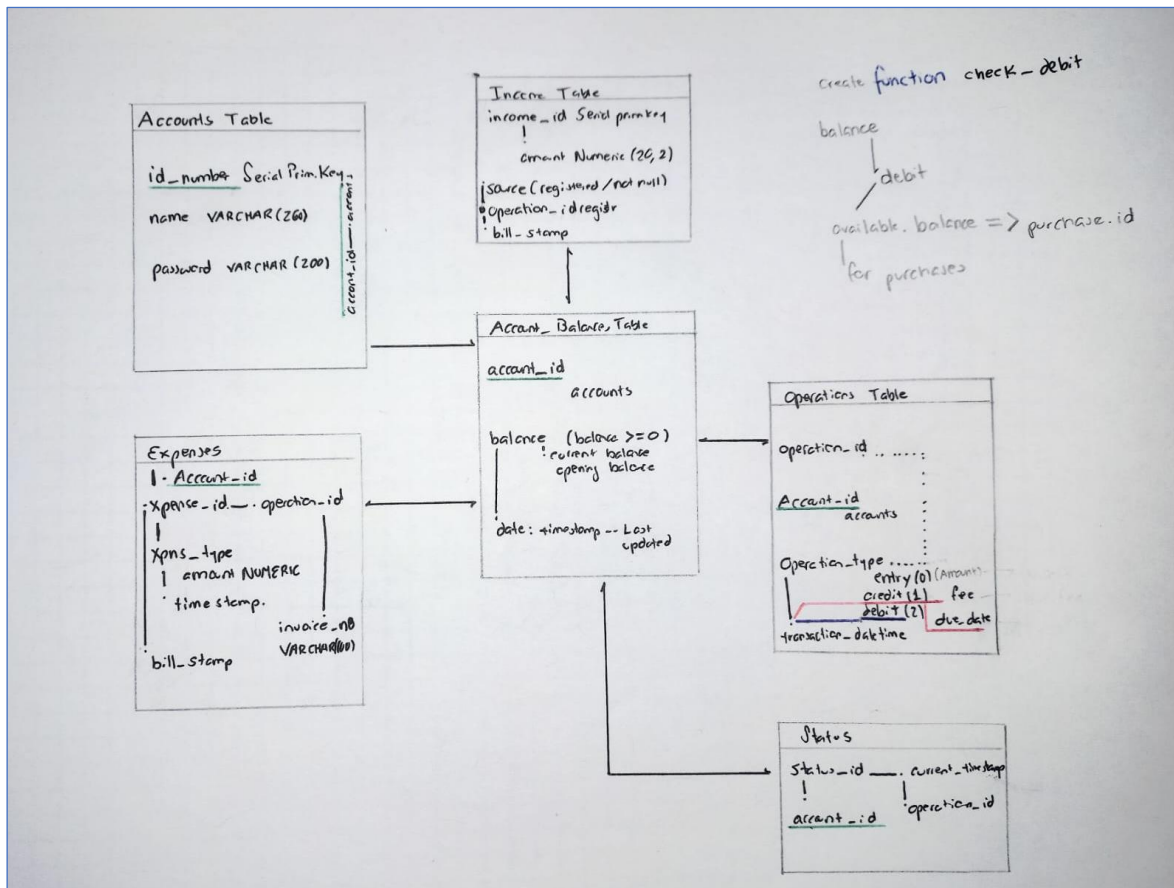 Accounts Table
id_number Serial Prim.Key
name VARCHAR(260)
password VARCHAR (200)
account_id
Income Table
income_id Serial primkey
amount Numeric (20, 2)
source (registered/not null)
operation_id registr
bill_stamp
create function check_debit
balance
debit
available.balance => purchase.id
for purchases
Account_Balance, Table
account_id
accounts
balance (balance >=0)
current balance
opening balance
date: timestamp -- Last
updated
Expenses
Account_id
xpense_id operation_id
xpns_type
amount NUMERIC
time stamp.
invoice_nB
VARCHAR(100)
bill_stamp
Operations Table
operation_id
Account_id
accounts
Operation_type
entry (0) (Amount)
credit (1) fee
debit (2)
due_date
transaction_datetime
Status
status_id current_timestamp
operation_id
account_id